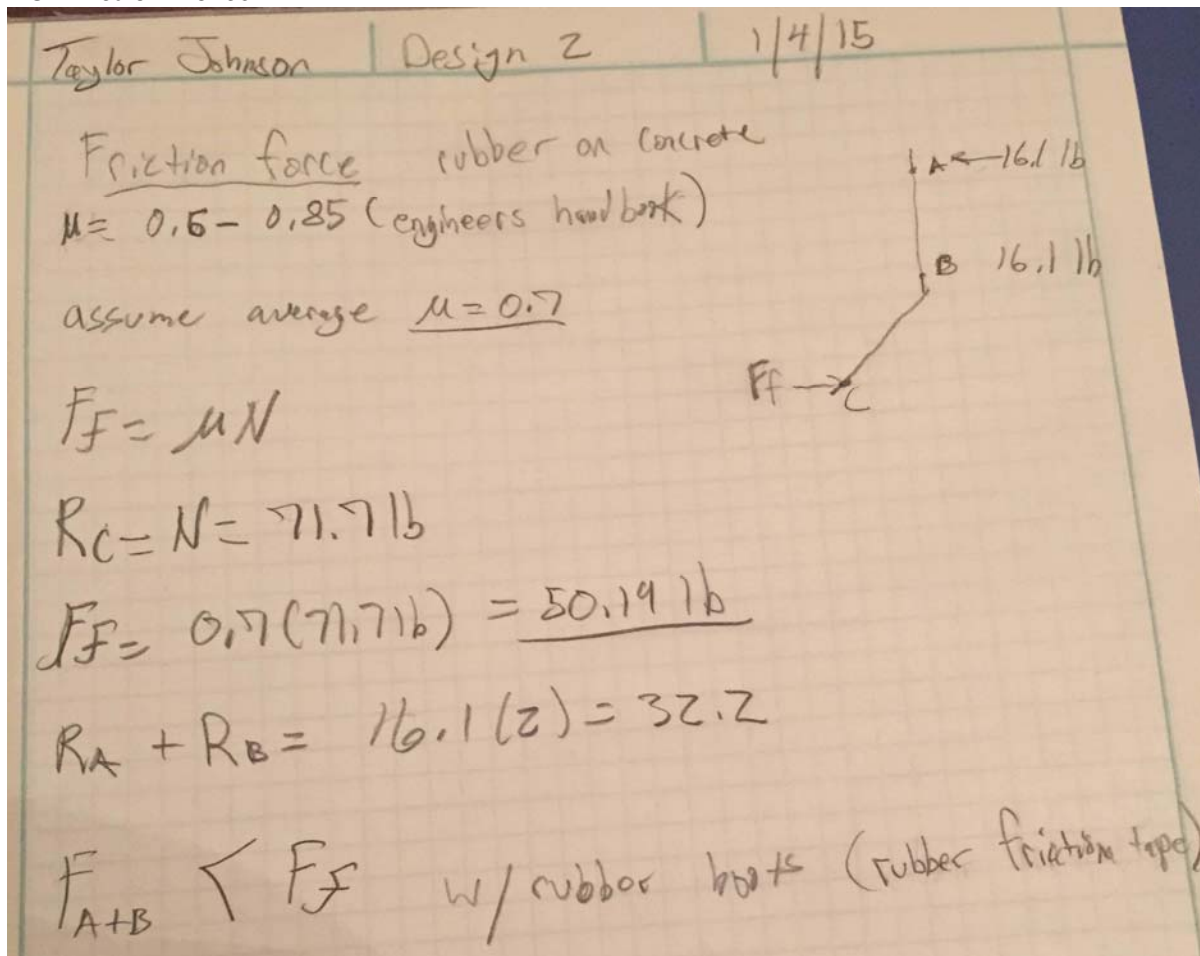 Taylor Johnson Design 2 1/4/15
Friction force rubber on concrete
μ = 0.6 - 0.85 (engineers handbook)
assume average μ = 0.7
A ← 16.1 lb
B 16.1 lb
Ff → C
Ff = μN
RC = N = 71.7 lb
Ff = 0.7(71.7 lb) = 50.19 lb
RA + RB = 16.1(2) = 32.2
FA+B < Ff w/ rubber boots (rubber friction tape)